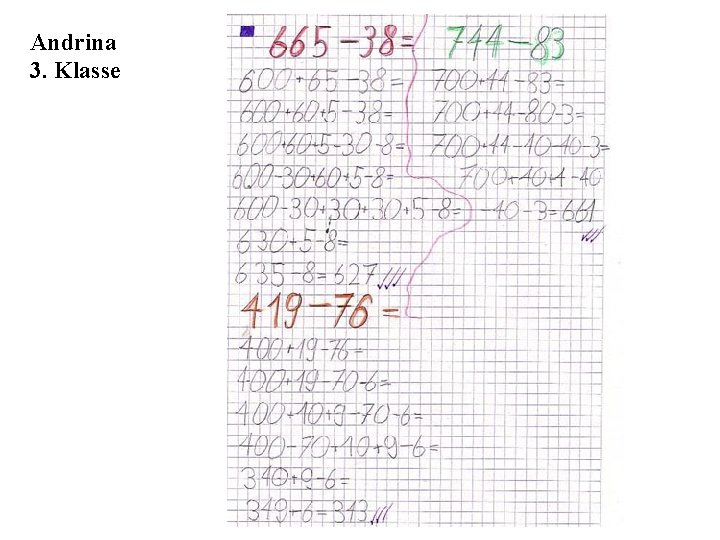 Andrina
3. Klasse
665-38=
600+65-38=
600+60+5-38=
600+60+5-30-8=
600-30+60+5-8=
600-30+30+30+5-8=
630+5-8=
635-8=627
744-83
700+44-83=
700+44-80-3=
700+44-40-40-3=
700+40+4-40
-40-3=661
419-76=
400+19-76=
400+19-70-6=
400+10+9-70-6=
400-70+10+9-6=
340+9-6=
349-6=343